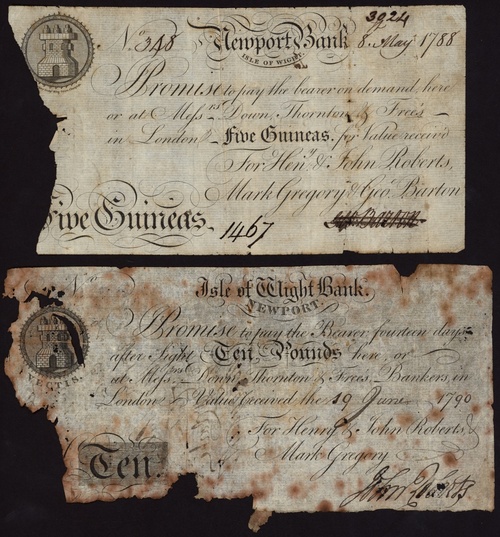 3924
No. 348 Newport Bank 8. May 1788
ISLE OF WIGHT.
I Promise to pay the bearer on demand here
or at Messrs. Down, Thornton & Free's
in London Five Guineas, for Value received
For Heny. & John Roberts,
Mark Gregory & Geo. Barton
Five Guineas. 1467
No Isle of Wight Bank.
NEWPORT.
I Promise to pay the Bearer fourteen days
after Sight Ten Pounds here, or
VECTIS.
at Messrs. Down, Thornton & Frees Bankers, in
London Value received the 19 June 1790
For Henry & John Roberts, &
Mark Gregory
Ten.
John Roberts